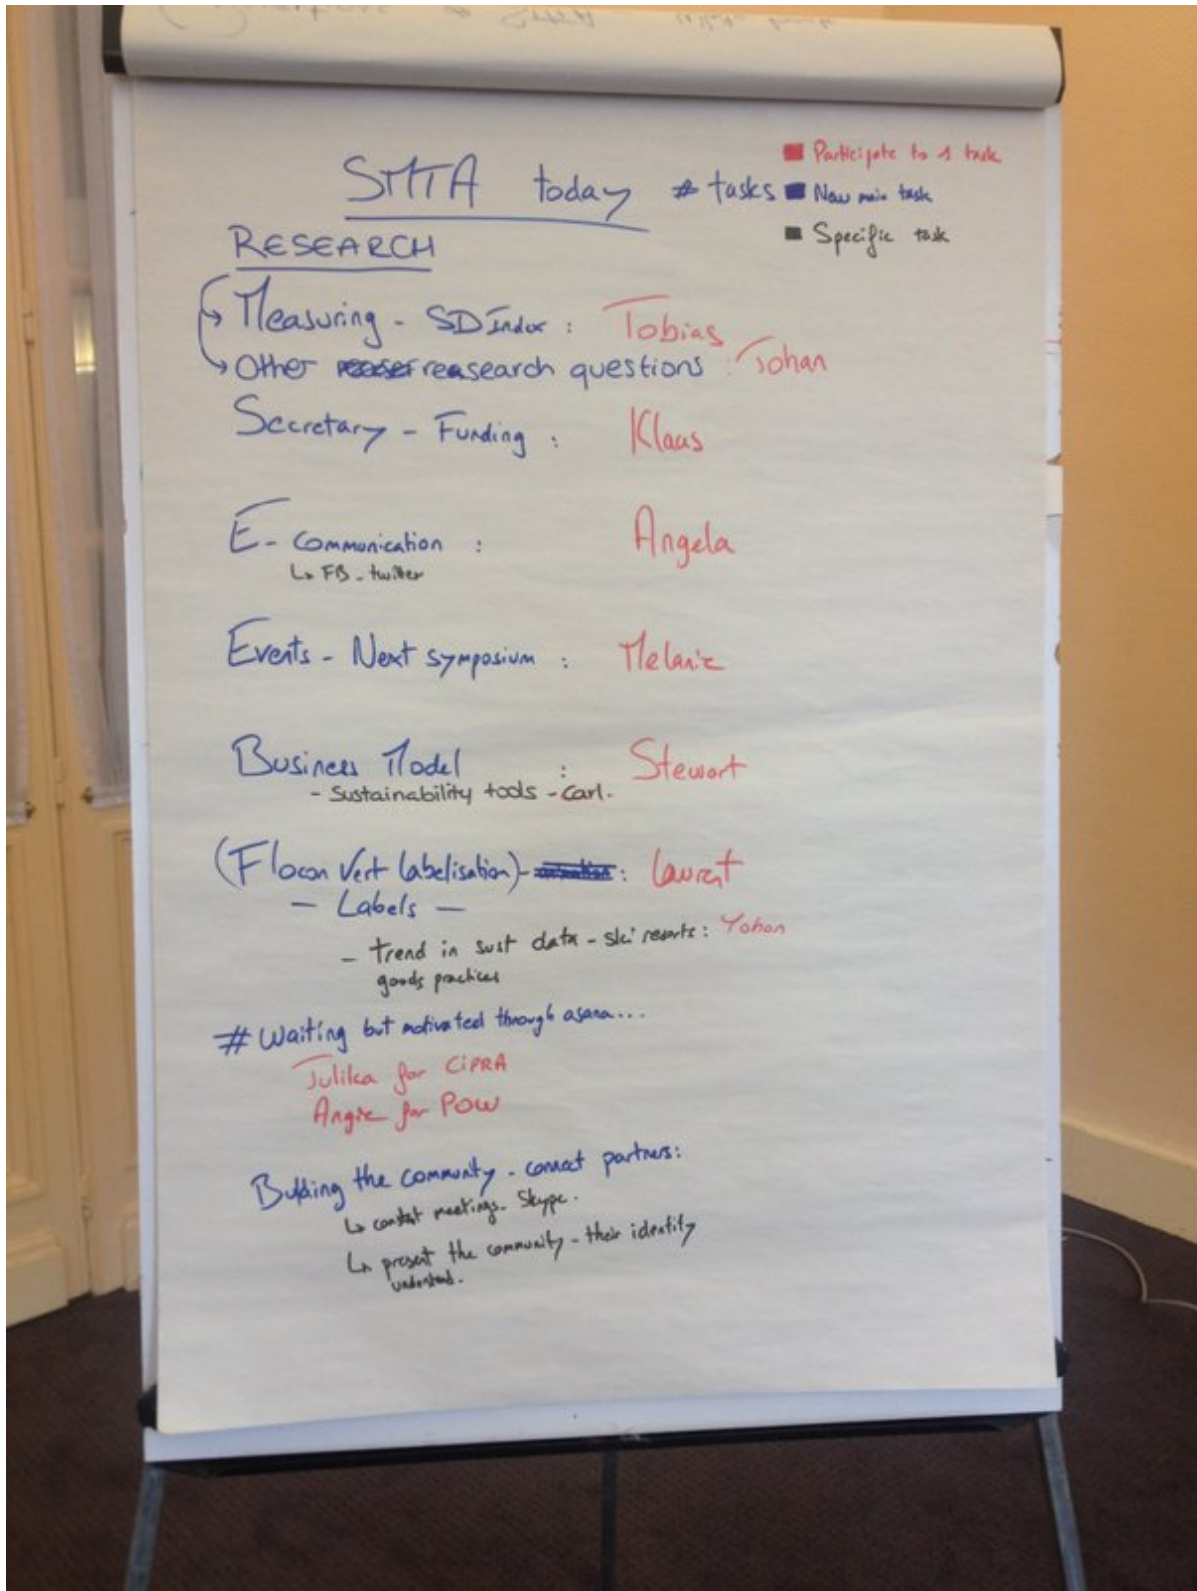 SMTA today # tasks
Participate to 1 task
New main task
Specific task
RESEARCH
Measuring - SD Index : Tobias
Other reasearch questions : Johan
Secretary - Funding : Klaas
E- communication : Angela
↳ FB - twitter
Events - Next symposium : Melanie
Business Model : Stewart
- Sustainability tools - Carl.
(Flocon Vert labelisation) - : Laurent
- Labels -
- trend in sust data - ski resorts : Yohan
goods practices
# Waiting but motivated through asana...
Julika for CIPRA
Angie for POW
Building the community - connect partners:
↳ constat meetings - Skype.
↳ present the community - their identity
understand.